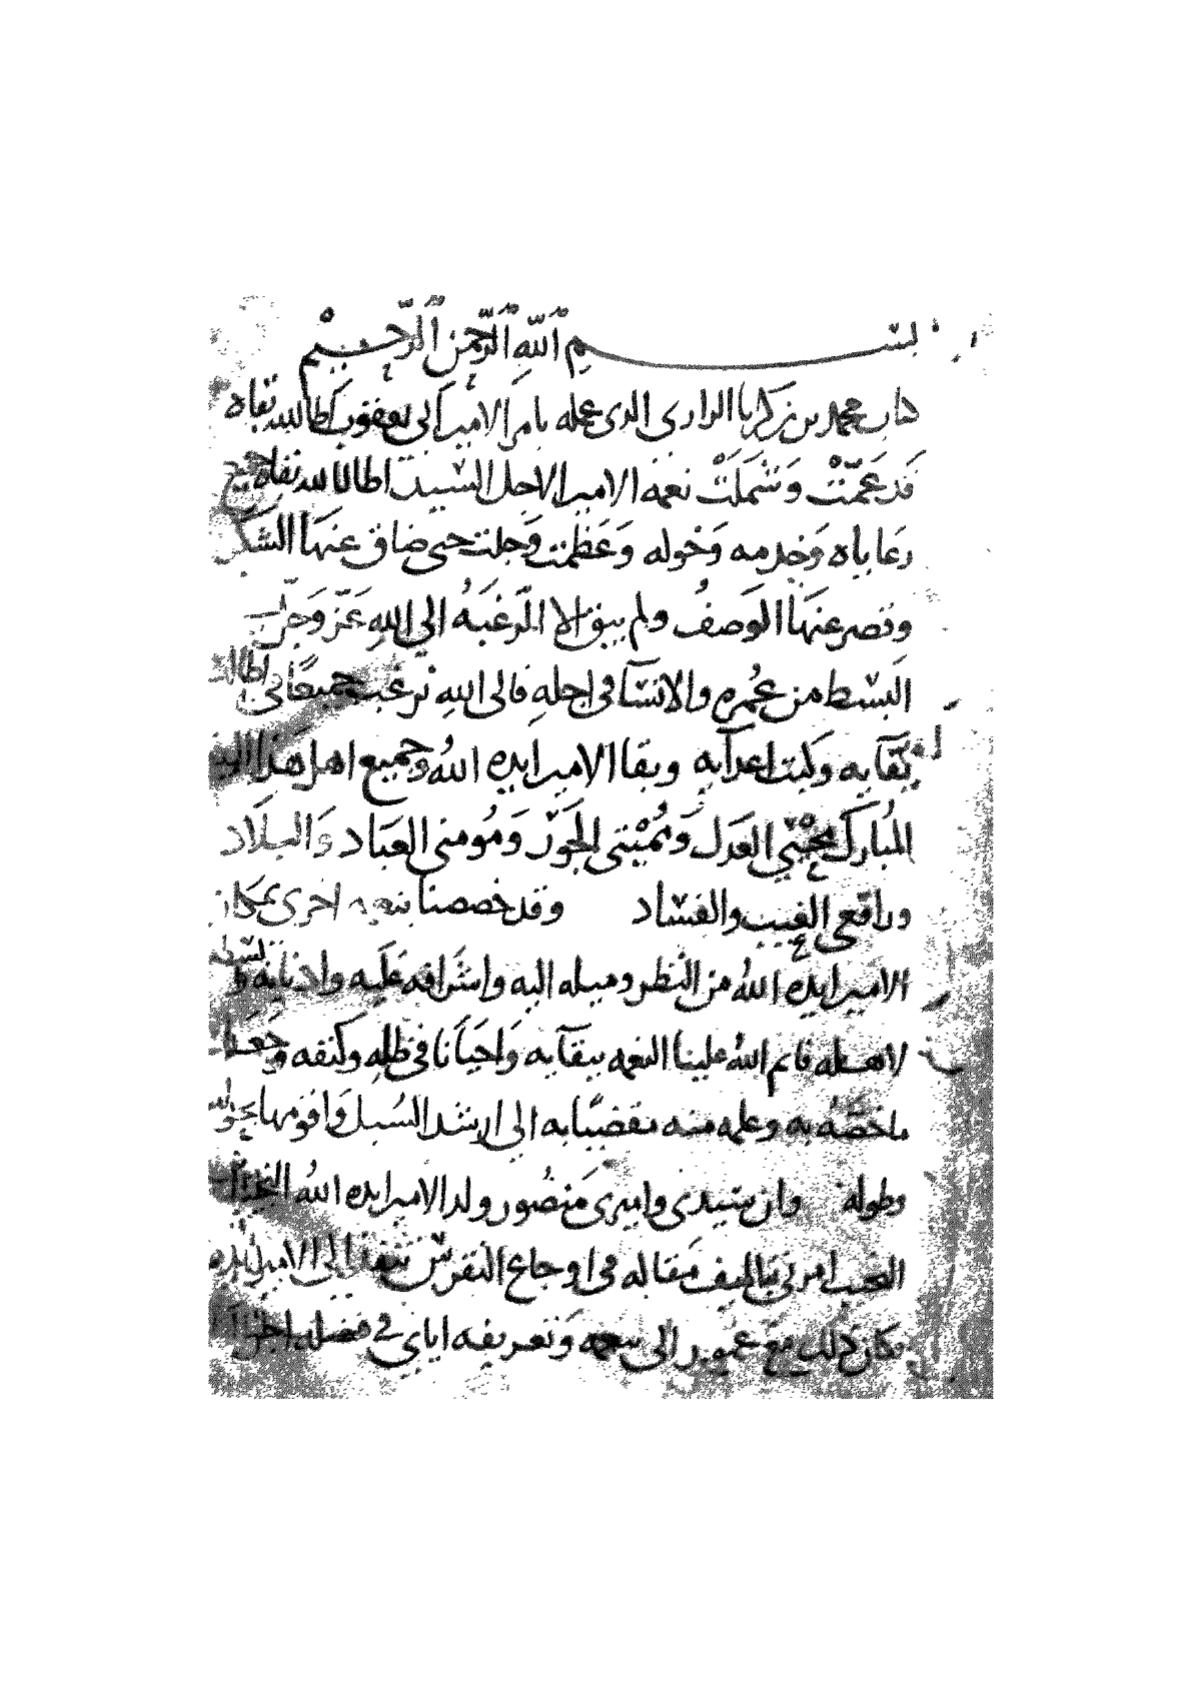 بســـــــم الله الرحمن الرحيم
كتاب محمد بن زكريا الرازى الذى عمله بامر الامير ابى يعقوب اطال الله بقاه
قد عَمَّتْ وَشَمَلَتْ نعمه الامير الاجل السيد اطال الله بقاه جميع
رعاياه وَخدمه وَخَوله وَعَظُمت وَجلت حتى ضاق عنهَا الشكر
وقصر عنهَا الوَصفُ ولم يبق الا الرَغبَهُ الى اللهِ عَزّ وَجلّ فى
البَسْط من عُمره والانسَآ فى اجلهِ فالى اللهِ نرغب جميعًا فى اطاله
بقَآيه وَكبت اعدآيه وبقا الامير ايده اللهُ وَجميع اهل هَذا البيت
المُبارك مُحْيِي العَدل وَمُمِيْتى الجَوَر وَمُومنى العبَاد وَالبلَاد
ورافعى العَيب والفسَاد وقد خصصنا بنعمه اخرى بمكان
الامير ايده اللهُ من النظر وميله اليه واشرَافه عَليه وادنايه
لاهله فاتم اللهُ علينا النعمه ببقآيه وَاحيَانا فى ظلهِ وكنفه وَجَعَل
ماخصّهُ به وعلمه منه مفضيًا به الى ارشد السُبل وَاقومها بحَوله
وطوله وان سيدى واميرى مَنصُور ولد الامير ايده اللهُ
امرنى بتاليف مَقاله فى اوجاع النقرس تنفذ الى الامير ايده
فكان ذلك مع وَتعريفه اياى فى فضله